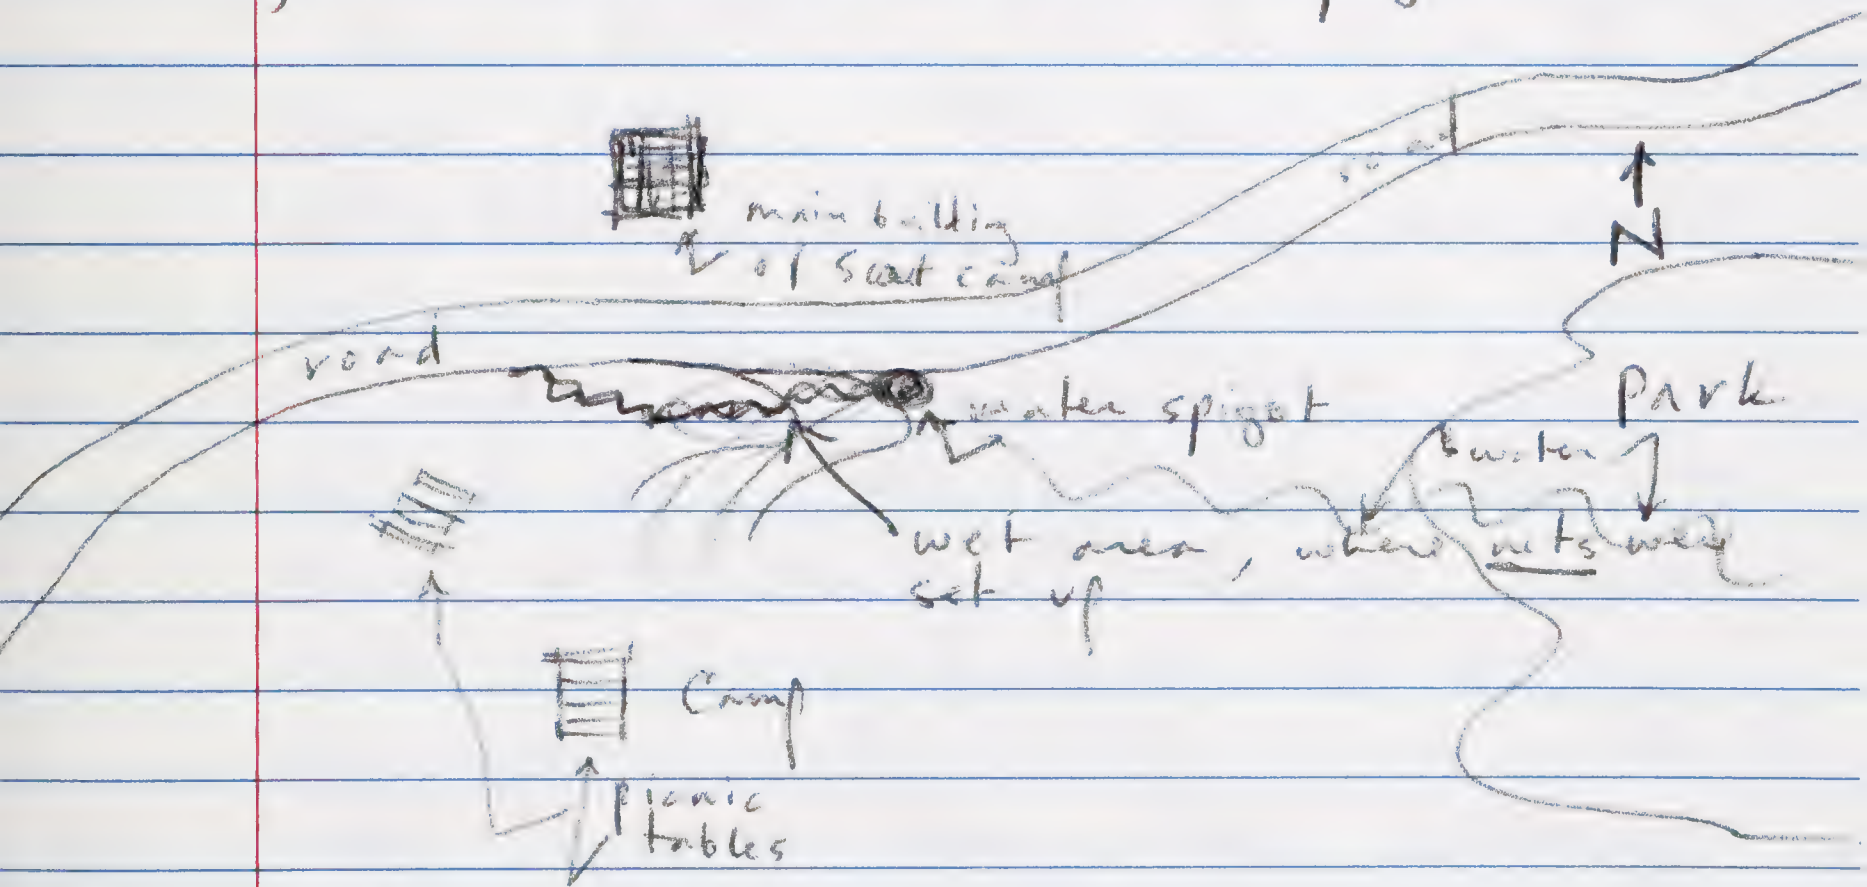 road
N
main building
of Scout camp
road
Park
water spigot
water
wet area, where nets were
set up
Camp
picnic
tables